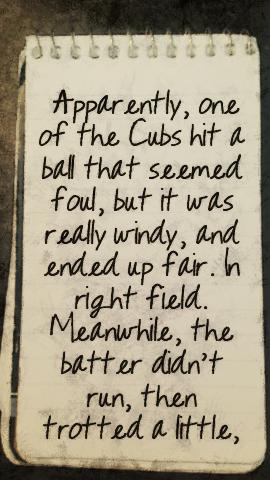 Apparently, one
of the Cubs hit a
ball that seemed
foul, but it was
really windy, and
ended up fair. In
right field.
Meanwhile, the
batter didn't
run, then
trotted a little,